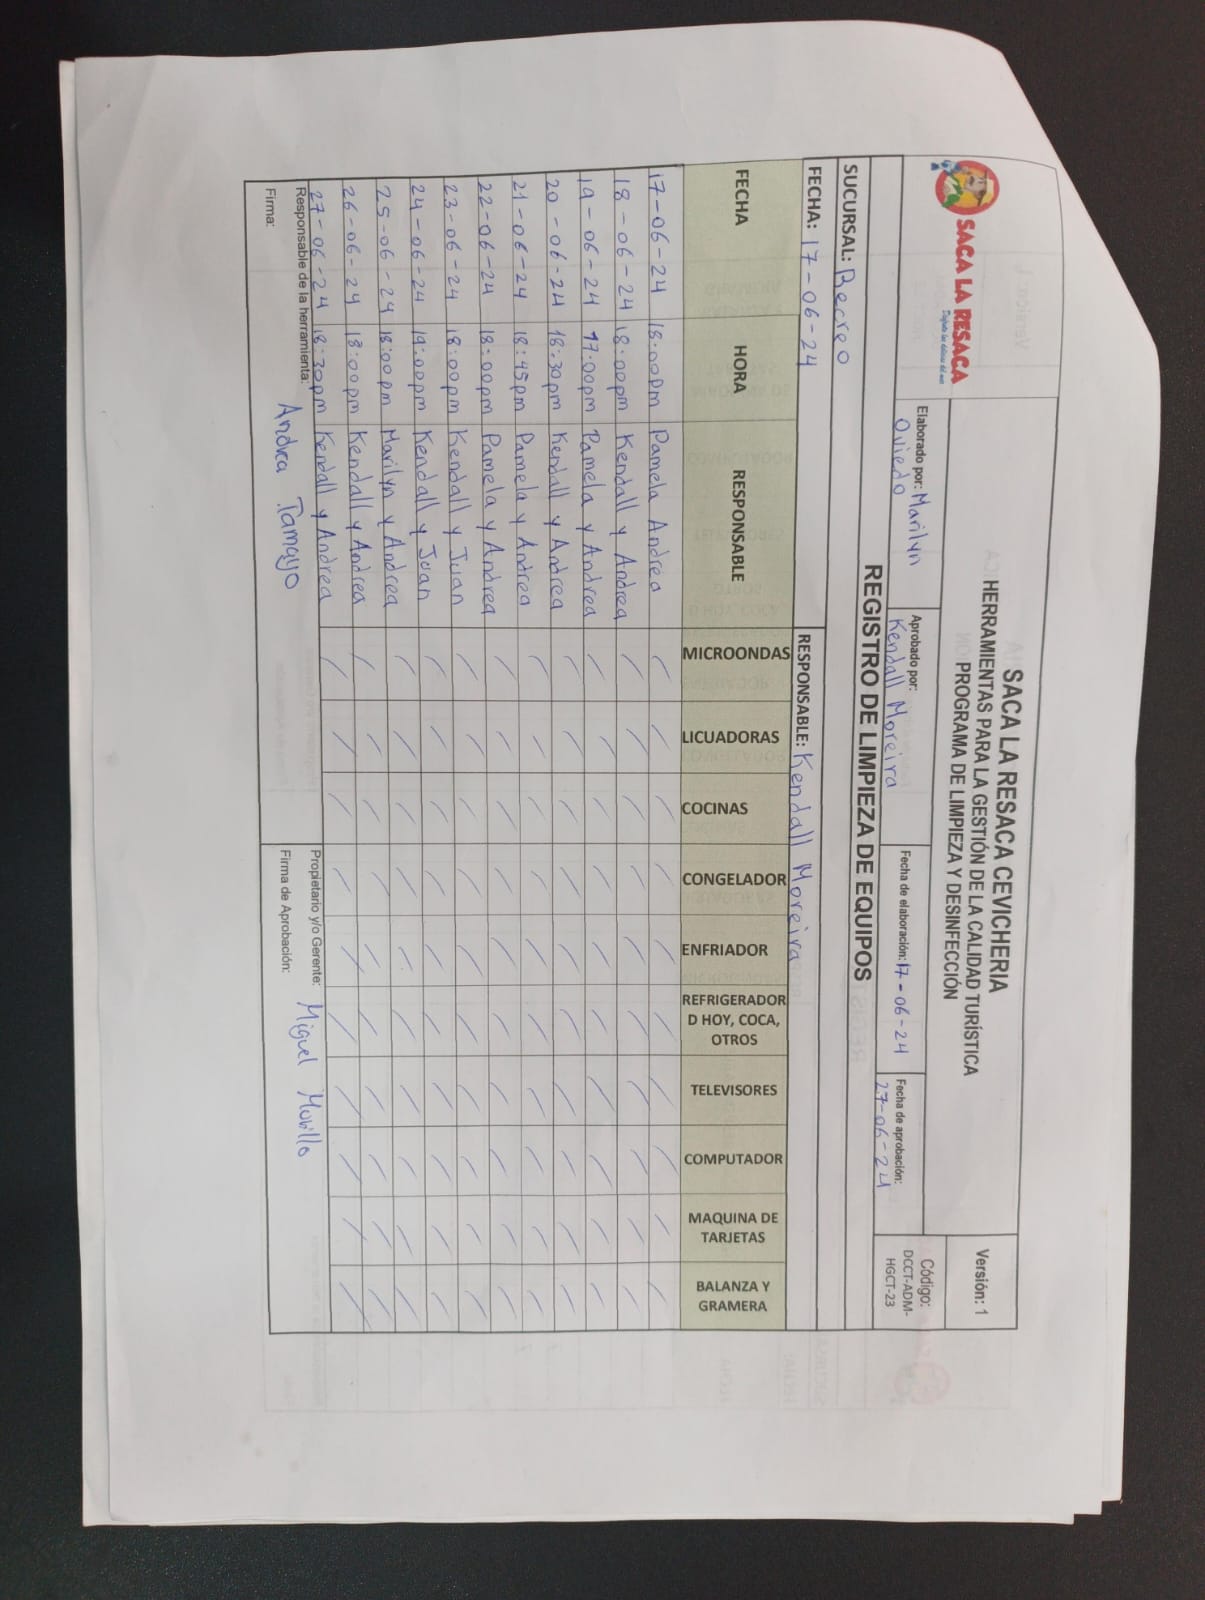 SACA LA RESACA
Disfruta las delicias del mar
SACA LA RESACA CEVICHERIA
HERRAMIENTAS PARA LA GESTIÓN DE LA CALIDAD TURÍSTICA
PROGRAMA DE LIMPIEZA Y DESINFECCIÓN
Versión: 1
Elaborado por: Marilyn Oviedo
Aprobado por: Kendall Moreira
Fecha de elaboración: 17-06-24
Fecha de aprobación: 27-06-24
Código: DCCT-ADM-HGCT-23
REGISTRO DE LIMPIEZA DE EQUIPOS
SUCURSAL: Recreo
FECHA: 17-06-24 RESPONSABLE: Kendall Moreira
FECHA HORA RESPONSABLE MICROONDAS LICUADORAS COCINAS CONGELADOR ENFRIADOR REFRIGERADOR D HOY, COCA, OTROS TELEVISORES COMPUTADOR MAQUINA DE TARJETAS BALANZA Y GRAMERA
17-06-24 18:00pm Pamela Andrea
18-06-24 18:00pm Kendall y Andrea
19-06-24 17:00pm Pamela y Andrea
20-06-24 18:30pm Kendall y Andrea
21-06-24 18:45pm Pamela y Andrea
22-06-24 18:00pm Pamela y Andrea
23-06-24 18:00pm Kendall y Juan
24-06-24 19:00pm Kendall y Juan
25-06-24 18:00pm Marilyn y Andrea
26-06-24 18:00pm Kendall y Andrea
27-06-24 18:30pm Kendall y Andrea
Responsable de la herramienta: Andrea Tamayo
Firma:
Propietario y/o Gerente: Miguel Morillo
Firma de Aprobación: